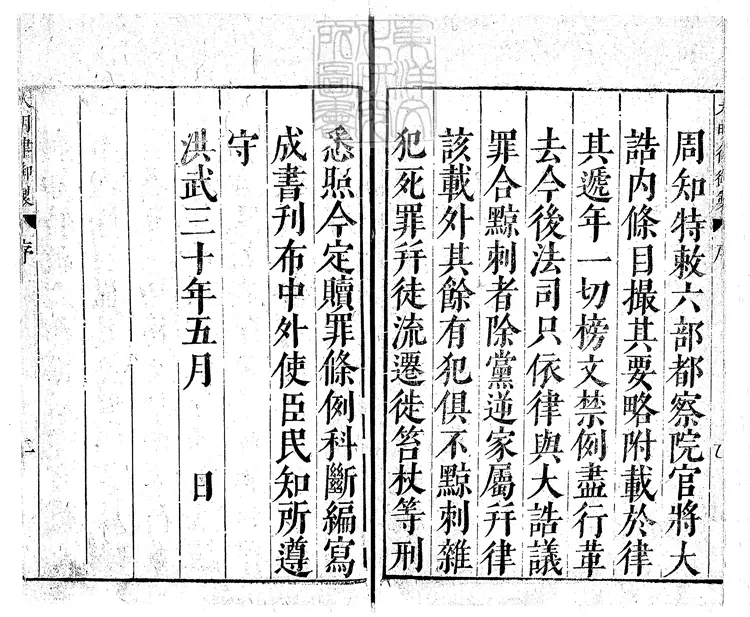 周知特敕六部都察院官將大
誥內條目撮其要略附載於律
其遞年一切榜文禁例盡行革
去今後法司只依律與大誥議
罪合黥刺者除黨逆家屬幷律
該載外其餘有犯俱不黥刺雜
犯死罪幷徒流遷徙笞杖等刑
悉照今定贖罪條例科斷編寫
成書刊布中外使臣民知所遵
守
洪武三十年五月 日
大明律御製 序